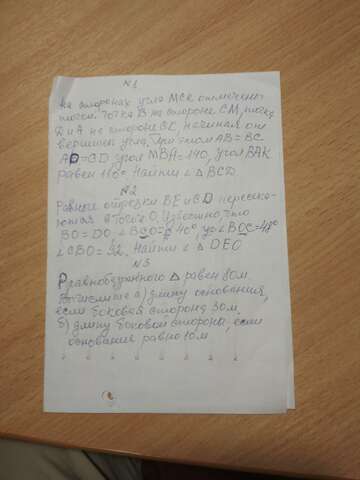 N1
на сторонах угла МСК отмечены
точки. Точка В на стороне СМ, точки
D и А на стороне СК, начиная от
вершины угла. При этом АВ = ВС
АD=СD, угол МВА=140, угол ВАК
равен 110°. Найти ∠ △ ВСD.
N2
Равные отрезки ВЕ и СD пересека-
ются в точке О. Известно, что
ВО = DО ∠ ВСО = 40° ∠ВОС=48°
∠СВО = 92. Найти ∠ △ DЕО
N3
Р равнобедренного △ равен 80м
Вычислите а) длину основания,
если боковая сторона 30м.
б) длину боковой стороны, если
основание равно 10м